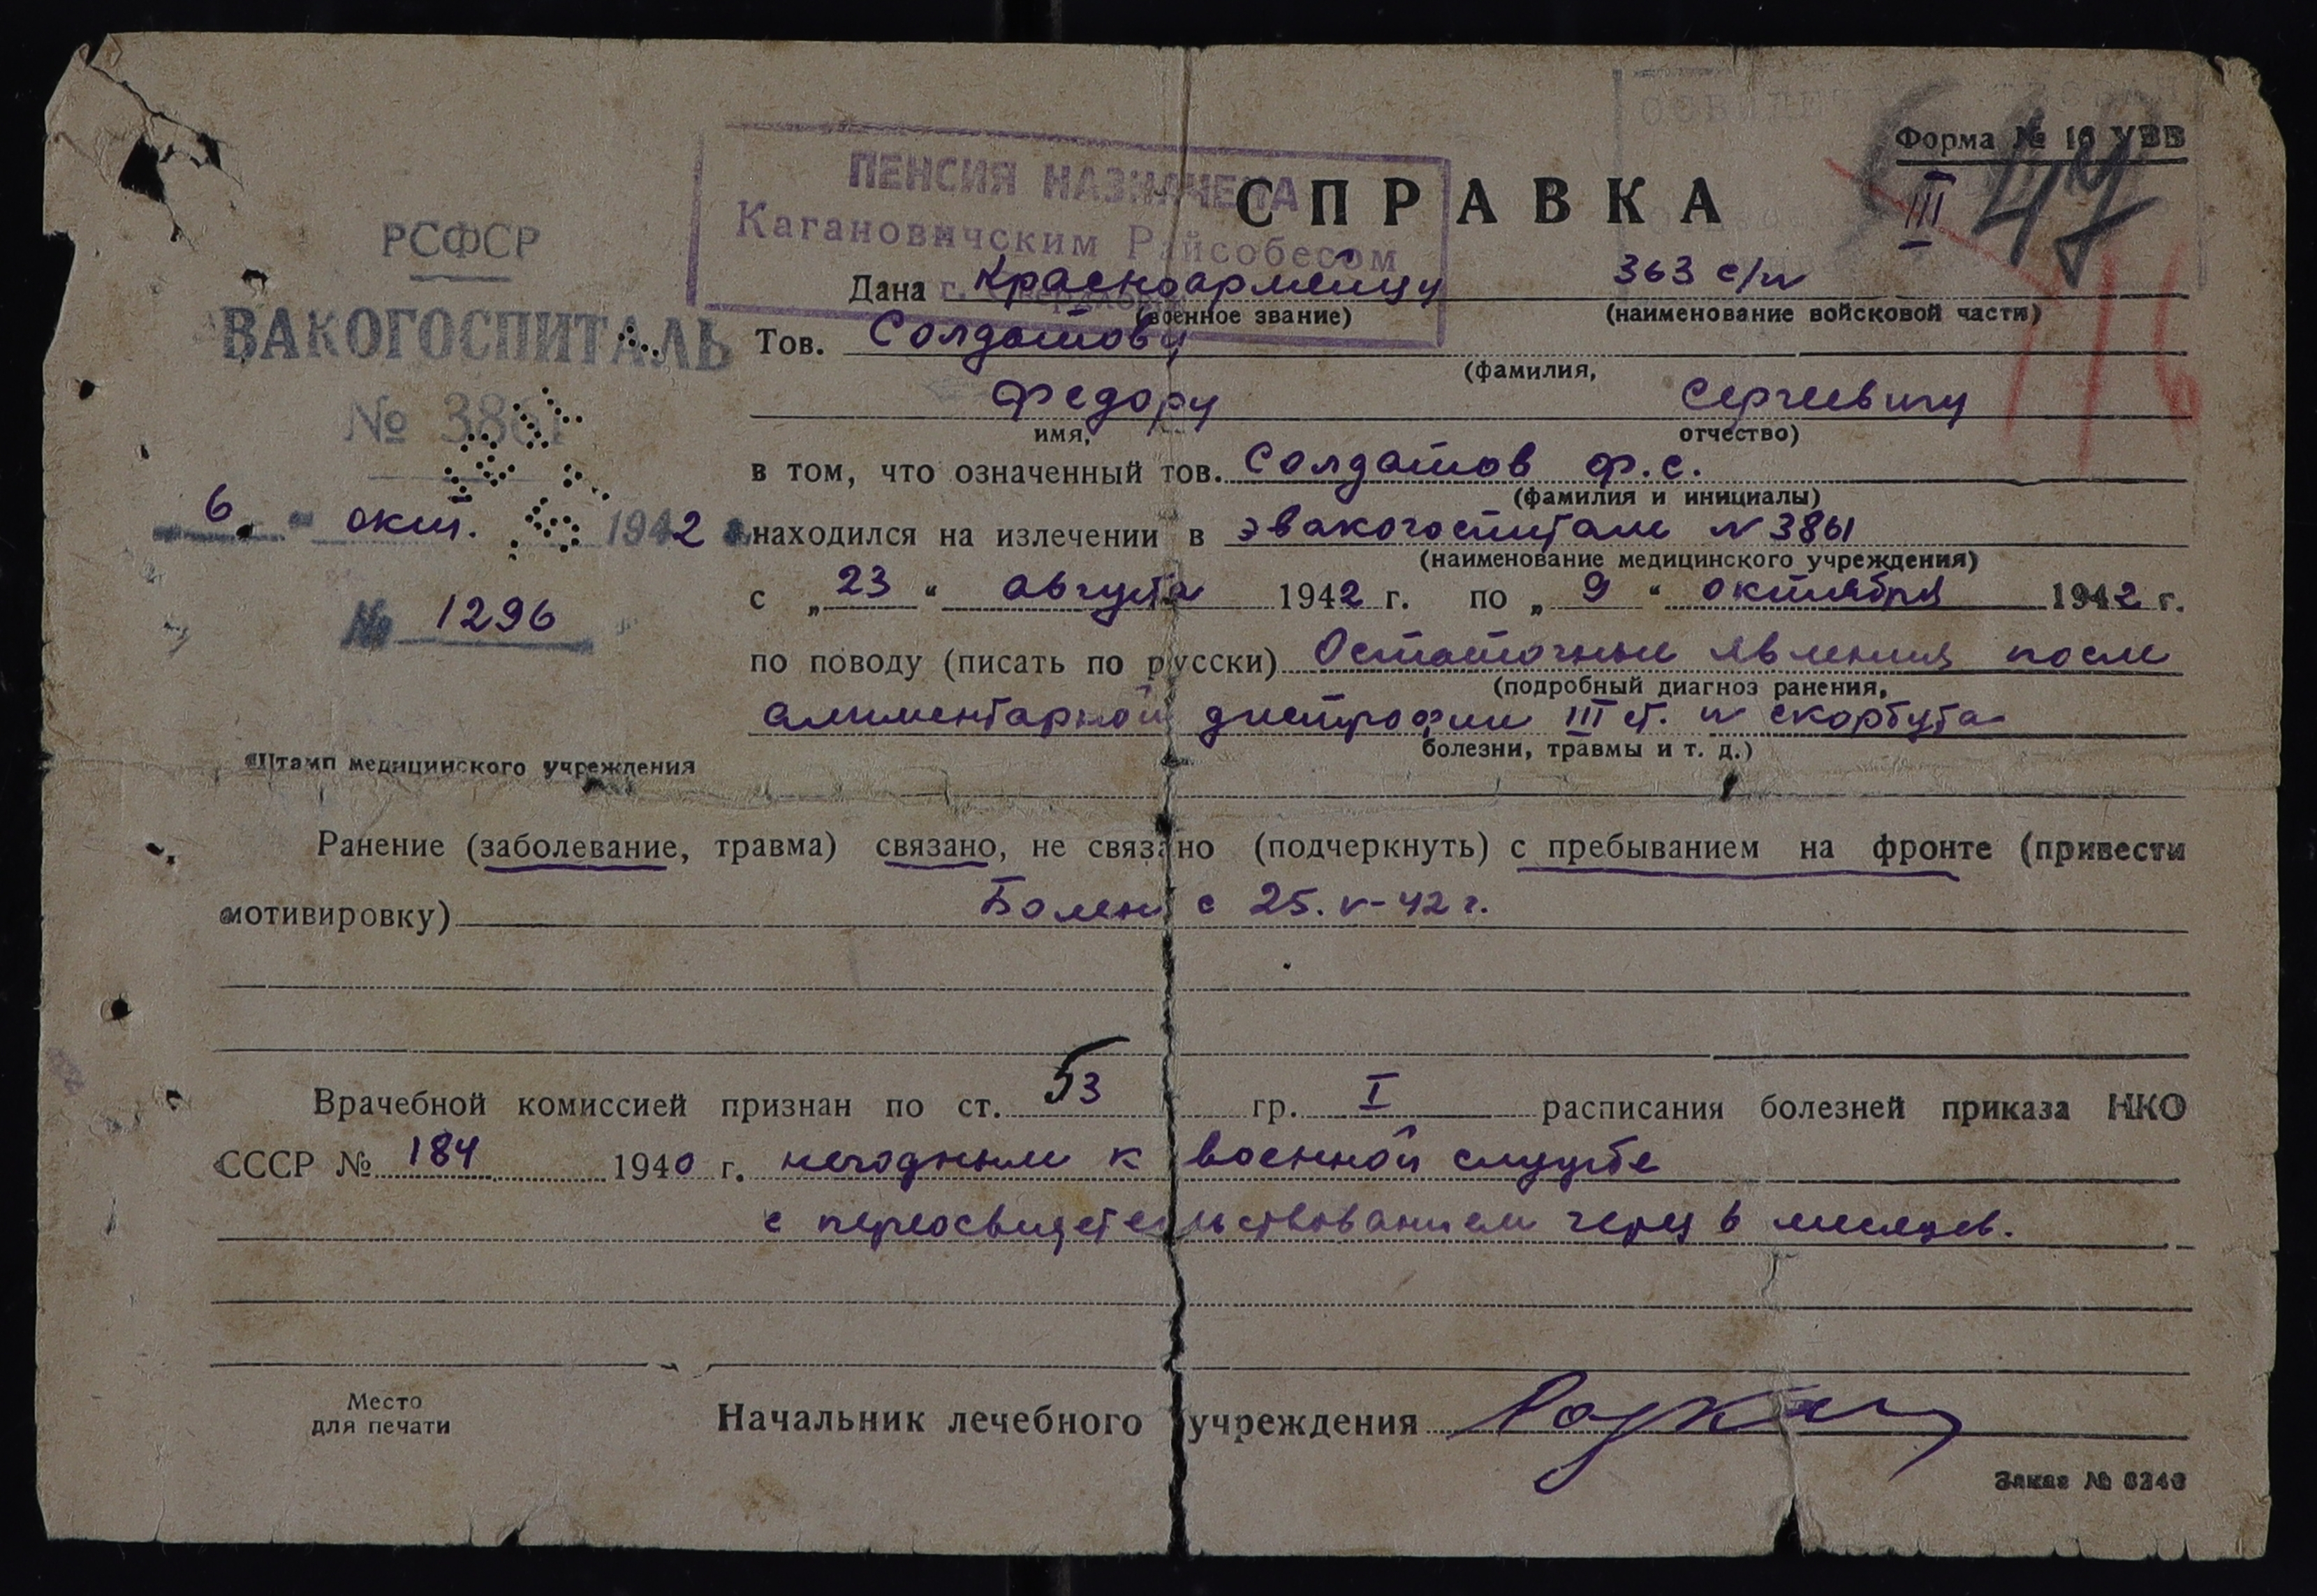 Форма № 16 УВВ
III
47
116
ПЕНСИЯ НАЗНАЧЕНА
Кагановичским Райсобесом
СПРАВКА
РСФСР
ВАКОГОСПИТАЛЬ
№ 3861
6 " окт. 1942
№ 1296
Штамп медицинского учреждения
Дана красноармейцу 363 с/п
(военное звание) (наименование войсковой части)
Тов. Солдатову
(фамилия,
Федору Сергеевичу
имя, отчество)
в том, что означенный тов. Солдатов Ф.С.
(фамилия и инициалы)
находился на излечении в эвакогоспитале N 3861
(наименование медицинского учреждения)
с „23" августа 1942 г. по „9" октября 1942 г.
по поводу (писать по русски) Остаточные явления после
(подробный диагноз ранения,
алиментарной дистрофии III ст. и скорбута
болезни, травмы и т. д.)
Ранение (заболевание, травма) связано, не связано (подчеркнуть) с пребыванием на фронте (привести
мотивировку) Болен с 25.V-42 г.
Врачебной комиссией признан по ст. 53 гр. I расписания болезней приказа НКО
СССР № 184 1940 г. негодным к военной службе
с переосвидетельствованием через 6 месяцев.
Место
для печати
Начальник лечебного учреждения
Заказ № 6246